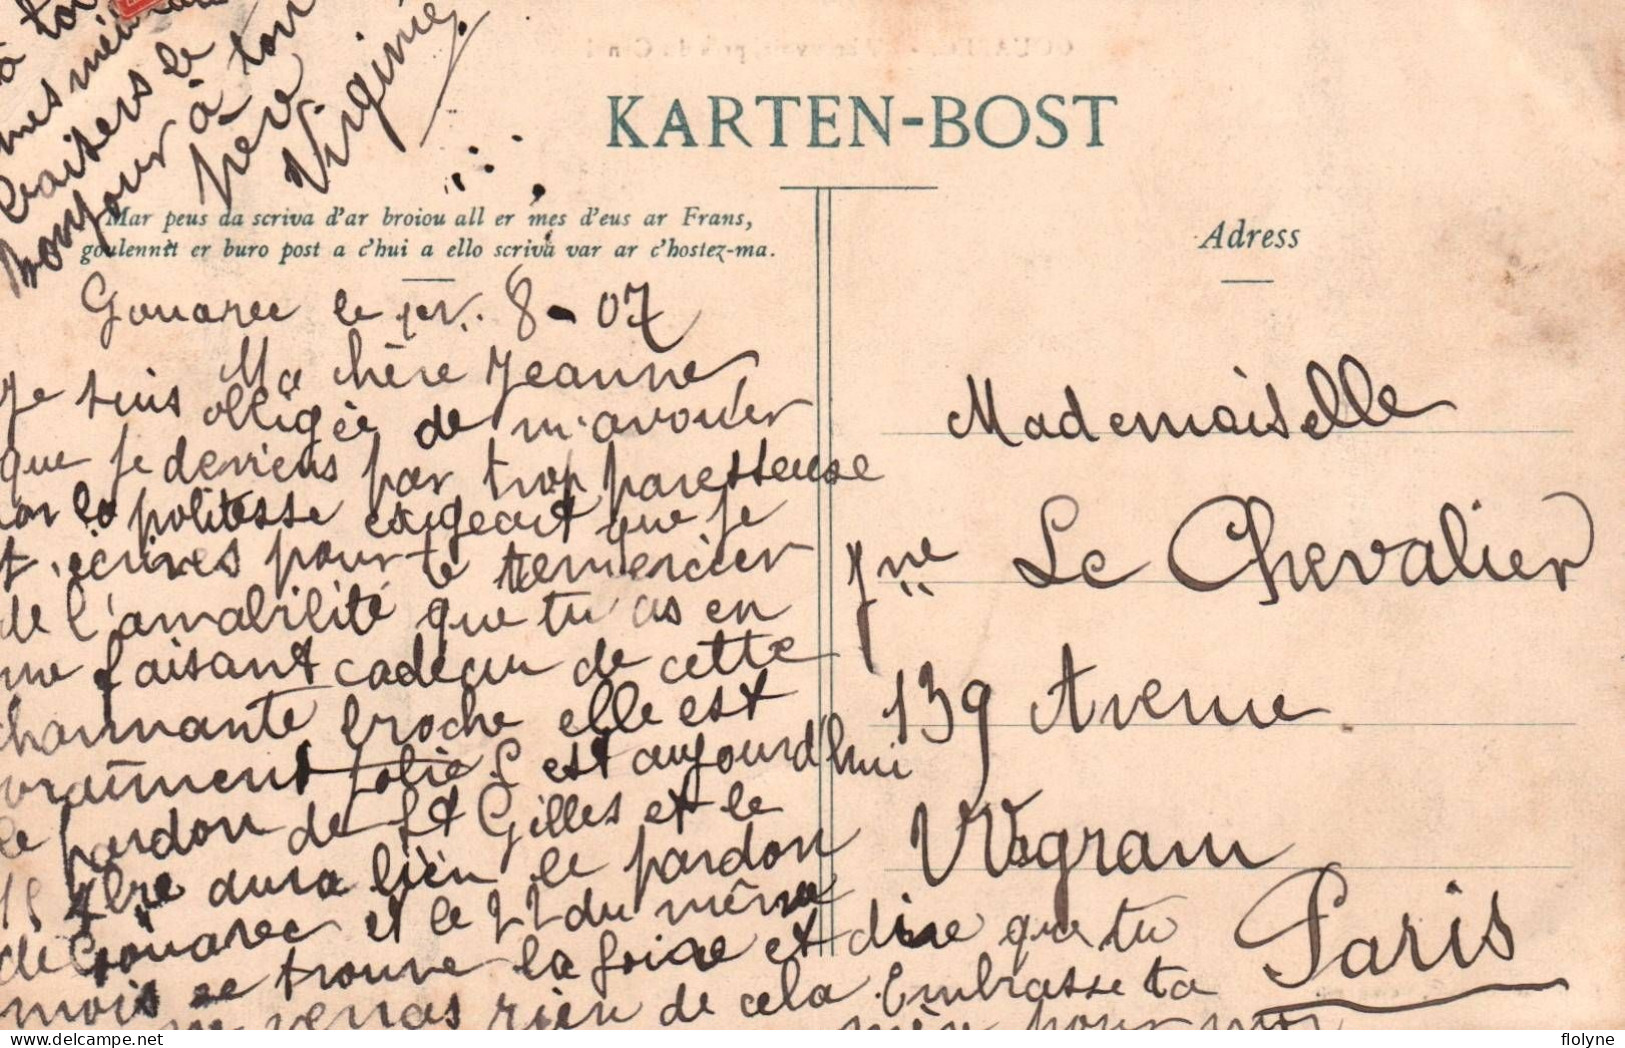 KARTEN-BOST
Mar peus da scriva d'ar broiou all er mes d'eus ar Frans,
goulennit er buro post a c'hui a ello scriva var ar c'hostez-ma.
Adress
Gouarec le 1er. 8-07
Ma chère Jeanne
Je suis obligée de m'avouer
que je deviens par trop paresseuse
car la politesse exigeait que je
t'écrives pour te remercier
de l'amabilité que tu as en
me faisant cadeau de cette
charmante broche elle est
vraiment jolie C est aujourd'hui
le pardon de St Gilles et le
15 7bre aura lieu le pardon
de Gouarec et le 22 du même
mois se trouve la foire et dire que tu
ne verras rien de cela. Embrasse ta
mère pour moi
à ton
mes
baisers le
bonjour à ton
père
Virginie
Mademoiselle
Jne Le Chevalier
139 Avenue
Wagram
Paris
flolyne